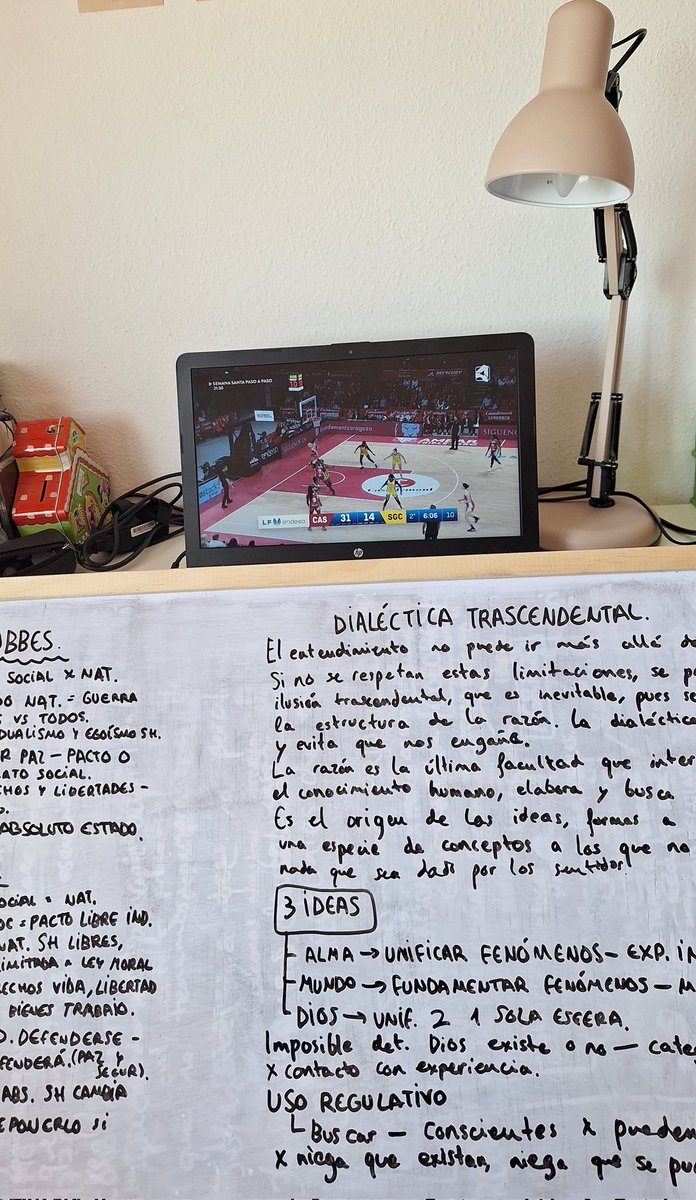 SEMANA SANTA PASO A PASO
21:30
demontzaragoza
SÍGUENO
LF endesa CAS 31 14 SGC 2° 6:06 10
hp
OBBES.
SOCIAL X NAT.
DO NAT. = GUERRA
S VS TODOS.
DUALISMO Y EGOÍSMO SH.
R PAZ - PACTO O
ATO SOCIAL.
CHOS Y LIBERTADES -
O.
ABSOLUTO ESTADO.
OCIAL = NAT.
OC = PACTO LIBRE IND.
NAT. SH LIBRES,
IMITADA A LEY MORAL
ECHOS VIDA, LIBERTAD
BIENES TRABAJO.
D. DEFENDERSE -
FENDERÁ. (PAZ Y
SEGUR).
ABS. SH CAMBIA
EPONERLO SI
DIALÉCTICA TRASCENDENTAL.
El entendimiento no puede ir más allá de
Si no se respetan estas limitaciones, se p
ilusión trascendental, que es inevitable, pues se
la estructura de la razón. La dialéctic
y evita que nos engañe.
La razón es la última facultad que inter
el conocimiento humano, elabora y busca
Es el origen de las ideas, formas a
una especie de conceptos a los que no
nada que sea dado por los sentidos.
3 IDEAS
ALMA → UNIFICAR FENÓMENOS - EXP. IN
MUNDO → FUNDAMENTAR FENÓMENOS - M
DIOS → UNIF. 2 1 SOLA ESFERA.
Imposible det. Dios existe o no - cate
X contacto con experiencia.
USO REGULATIVO
Buscar - conscientes X pueden
X niega que existan, niega que se pu